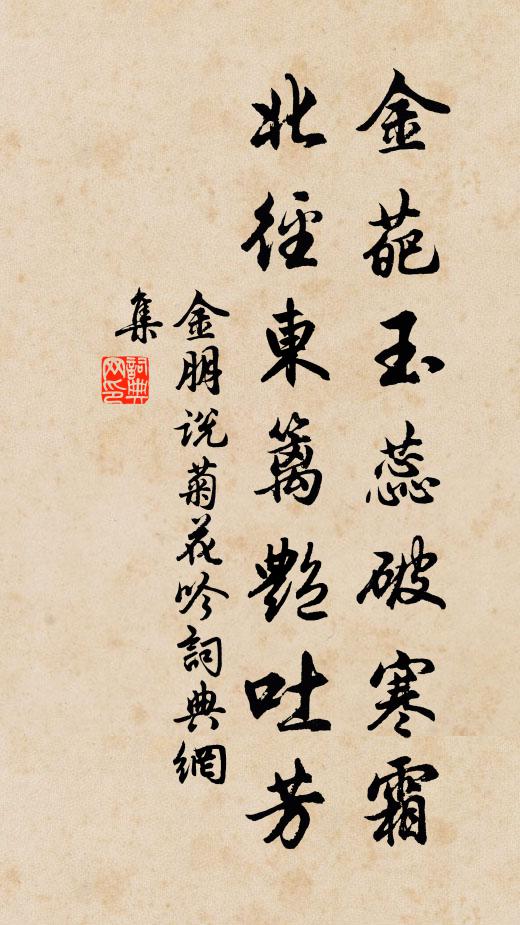 金葩玉蕊破寒霜
北徑東籬艷吐芳
金朋说菊花吟詞典網
集
詞典网印